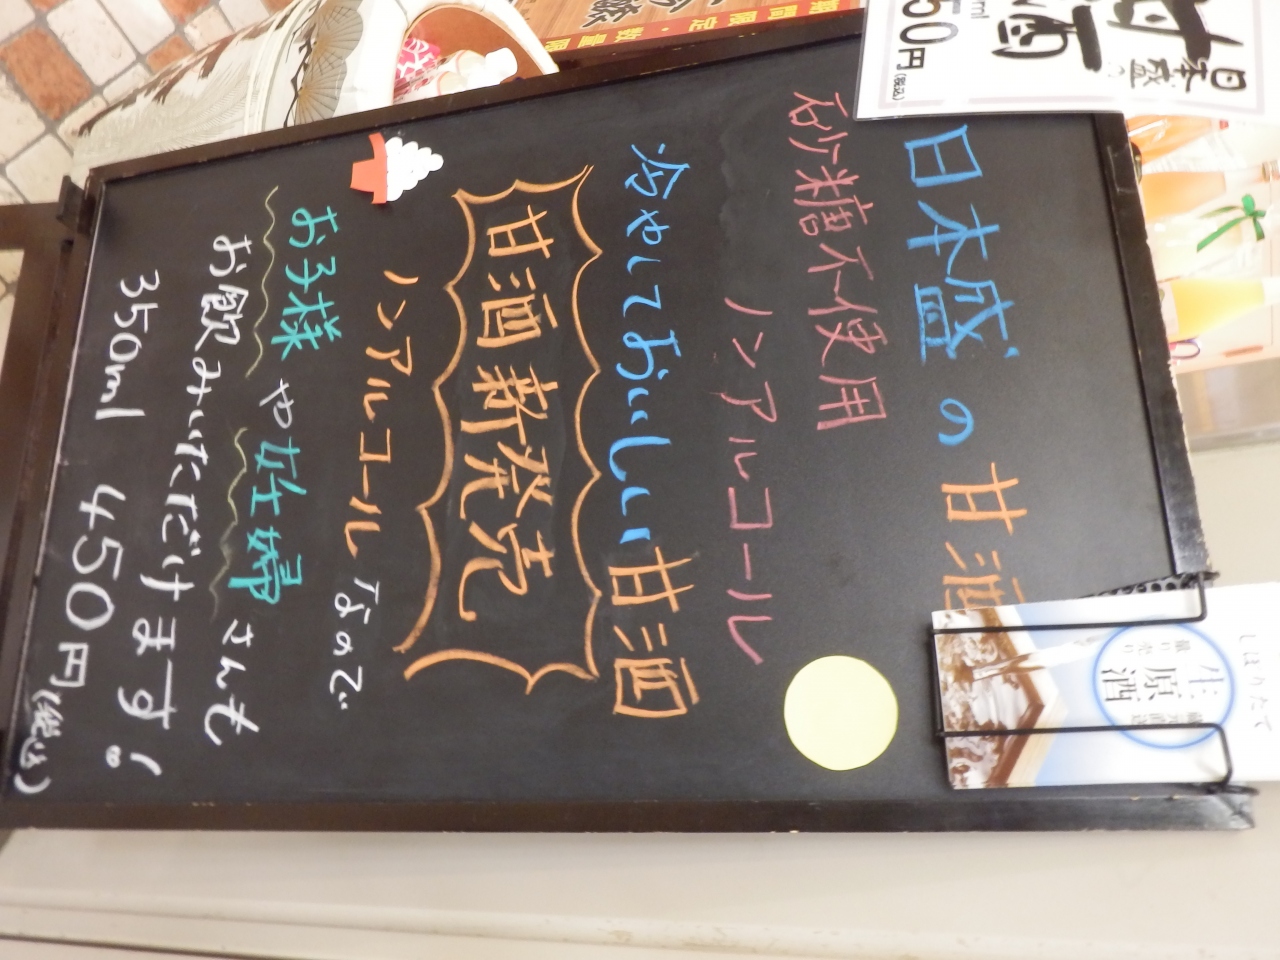 日本盛の甘酒
砂糖不使用
ノンアルコール
冷やしておいしい甘酒
甘酒新発売
ノンアルコールなので
お子様や妊婦さんも
お飲みいただけます!!
350ml 450円(税込)
日本盛の
甘酒
50円(税込)
期間限定・数量限
しぼりたて
生原酒
量り売り